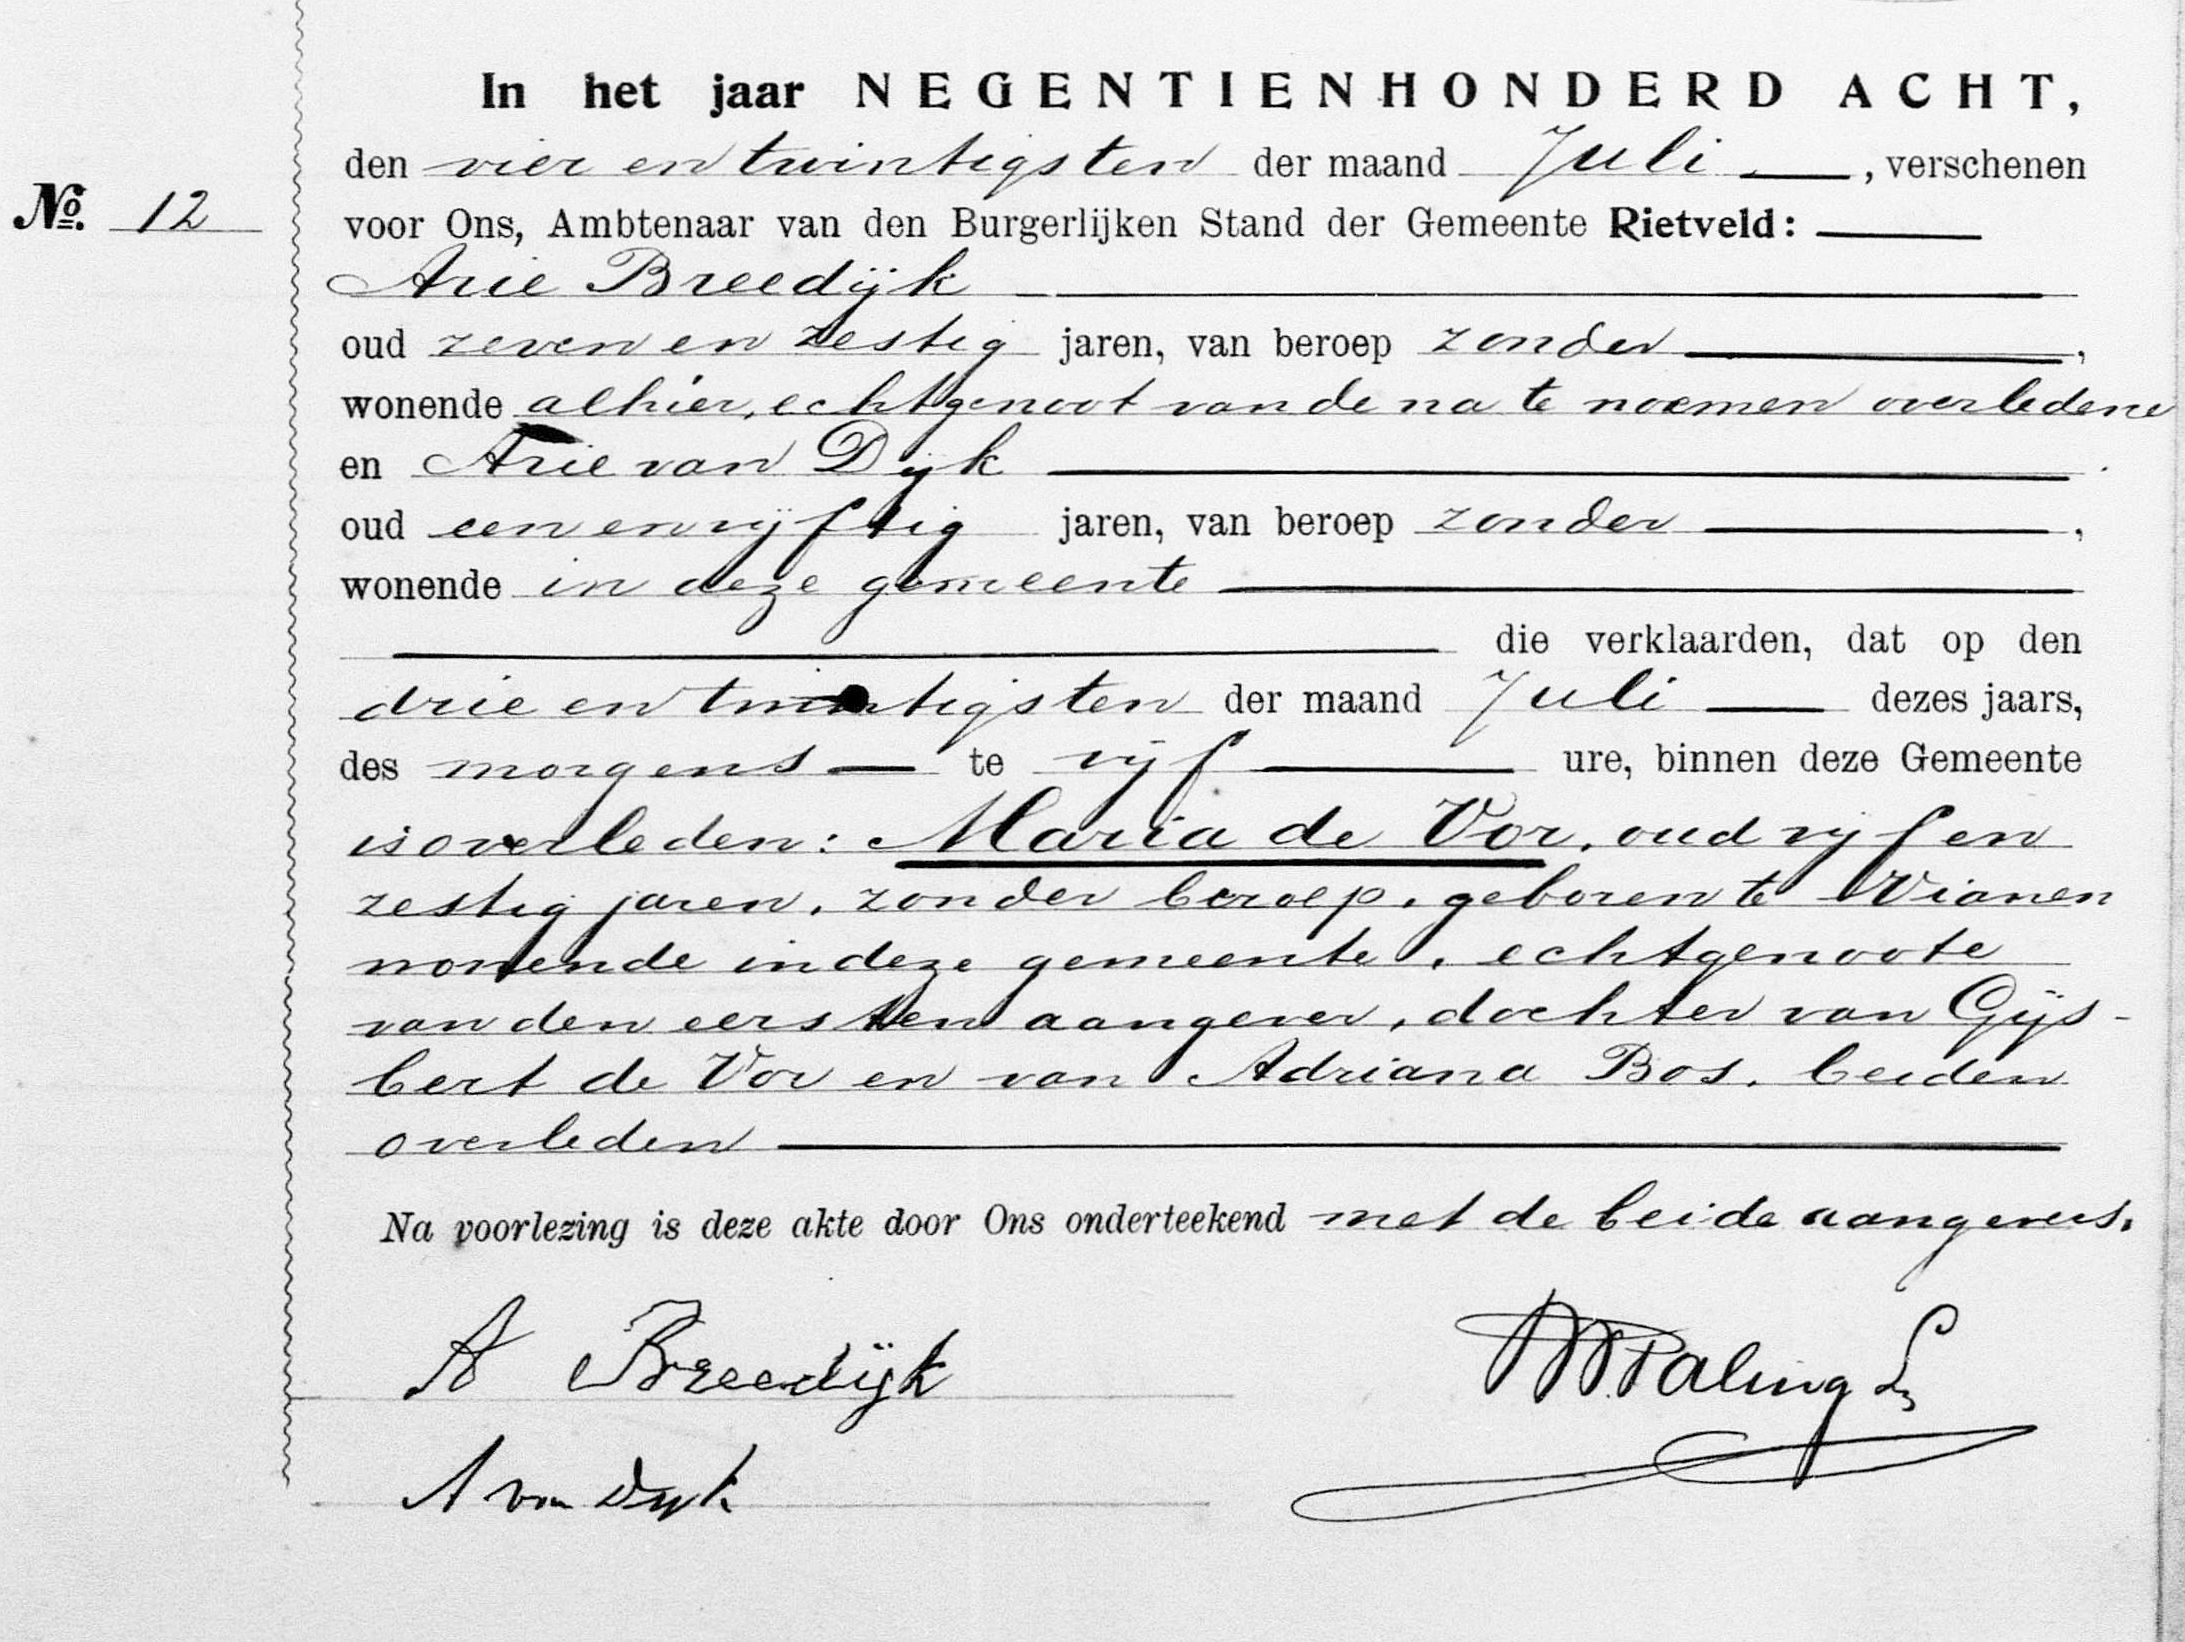 In het jaar NEGENTIENHONDERD ACHT,
den vier en twintigsten der maand Juli, verschenen
No. 12
voor Ons, Ambtenaar van den Burgerlijken Stand der Gemeente Rietveld:
Arie Breedijk
oud zeven en zestig jaren, van beroep zonder,
wonende alhier, echtgenoot van de na te noemen overledene
en Arie van Dijk
oud een en vijftig jaren, van beroep zonder,
wonende in deze gemeente
die verklaarden, dat op den
drie en twintigsten der maand Juli dezes jaars,
des morgens te vijf ure, binnen deze Gemeente
is overleden: Maria de Vor, oud vijf en
zestig jaren, zonder beroep, geboren te Vianen
wonende in deze gemeente, echtgenoote
van den eersten aangever, dochter van Gijs-
bert de Vor en van Adriana Bos, beiden
overleden
Na voorlezing is deze akte door Ons onderteekend met de beide aangevers.
A Breedijk
Paling
A van Dijk